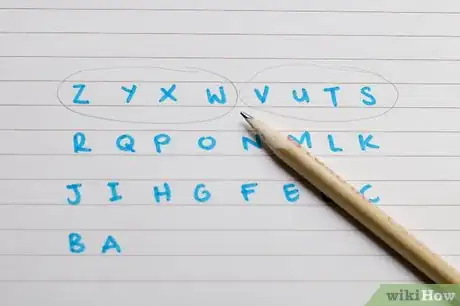 Z Y X W V U T S
R Q P O N M L K
J I H G F E C
B A
wikiHow